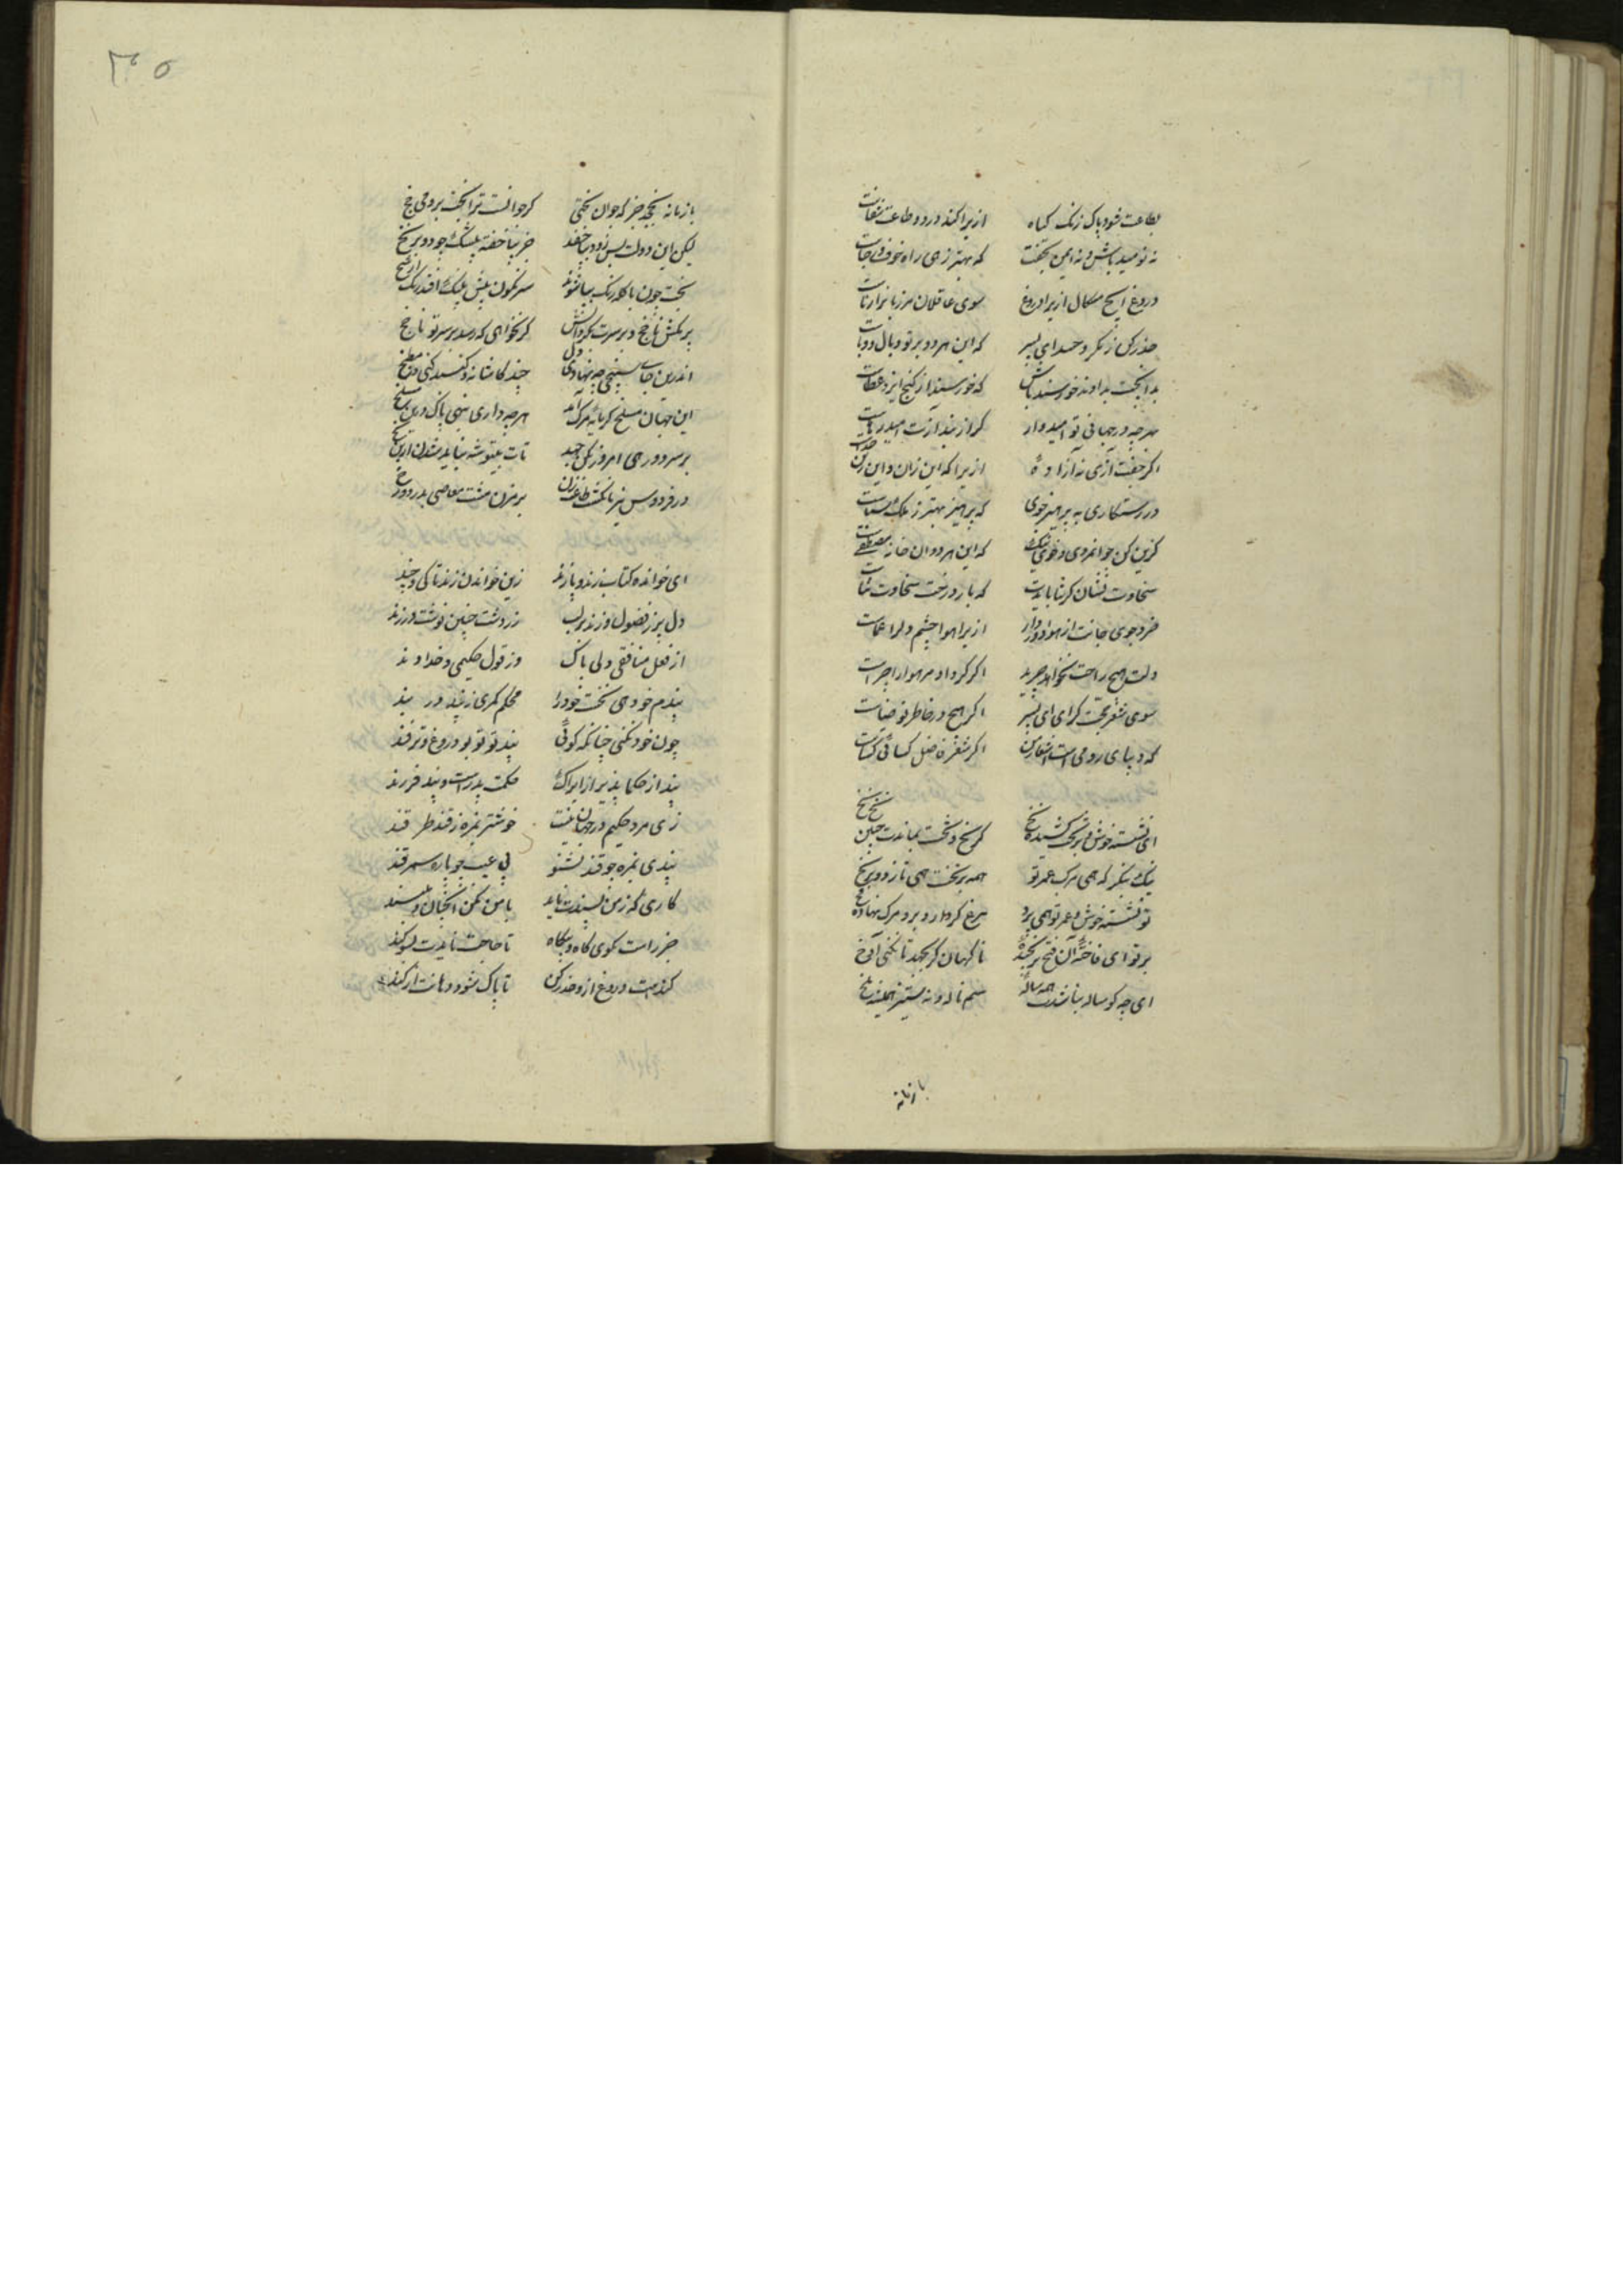 بطاعت شود پاک زنک کناه ازیرا کند درد و طاعت شفاست
نه نومید باش و نه ایمن بخفت که بهتر رهی راه خوف و رجاست
دروغ ایچ مسکال ازیرا دروغ سوی عاقلان مر زبانرا زناست
حذر کن ز مکر و حسد ای پسر که این هر دو بر تو وبال و وباست
بدانچت بداد نه خورسند باش که خورسندی از کنج ایزد عطاست
بهرچه در جهانی تو امیدوار
اکر جفت آزی نه آزاده ازیرا که این زان و این زین جداست
درستکاری به پرهیز جوی که پرهیز بهتر ز ملک سباست
کزین کن جوانمردی و خوی نیک که این هر دو آن خانه مصطفاست
سخاوت نشان کر ثنا بایدت که بار درخت سخاوت ثناست
خرد جوی و جانت از هوا دور دار ازیرا هوا چشم دل را عماست
دلت هیچ راحت نخواهد چرید اکر کرد او مر هوا را چراست
سوی شعر حجت کرای ای پسر اکر هیچ در خاطر تو ضیاست
که دیبای رومی است اشعار من اکر شعر فاضل کسائی کساست
ای نشسته خوش و بر تخت کشیده نخ نخ کر نخ و تخت بماندت چنین نخ نخ
نیک بنکر که همی مرکب عمر تو همه بر تخت همی تازد و بر نخ
تو نشسته خوش و عمر تو همی پرد مرغ کردار و برو مرک نهاده فخ
بر تو ای فاخته آن فخ بر نجیده ناکهان کر بجهد تا نکنی آوخ
بازمانه
بازمانه نچخد جز که جوان بختی کر جوانست ترا بخت برو می چخ
لیکن این دولت بس زود بپا خفتد خر بپا خفته بیشک بجود و بر یخ
بخت چون با کله رنک بیاشوبد
برکش ناچخ و بر سرت بکردانش کر نخواهی که رسد بر سر تو ناچخ
اندرین جای سپنجی چه نهادی دل چند کاشانه و کنبد کنی و مطبخ
این جهان مسلخ کرمابه مرک آمد هرچه داری بنهی پاک درین مسلخ
بر سر دو رهی امروز بکن جهدی تات بی توشه نباید شدن از برزخ
در فردوس بانکشت طاعت زن بر مزن مشت معاصی بدر دوزخ
ای خوانده کتاب زند و پازند زین خواندن زند تا کی و چند
دل پر ز فضول و زند بر لب زردشت چنین نوشت در زند
از فعل منافقی و بی باک وز قول حکیمی و خداوند
پندم چو دهی نخست خود را محکم کمری ز پند بر بند
چون خود نکنی چنانکه کوئی پند تو بود دروغ و ترفند
پند از حکما پذیر ازیراک حکمت پدرست و پند فرزند
زی مرد حکیم در جهان نیست خوشتر بمزه ز قند جز قند
پندی بمزه چو قند بشنو بی عیب چو پاره سمرقند
کاری که ز من پسندت ناید با من مکن آنچنان و مپسند
جز راست مکوی کاه و بیکاه تا حاجت نایدت بسوکند
کنده است دروغ ازو حذر کن تا پاک شود دهانت از کند